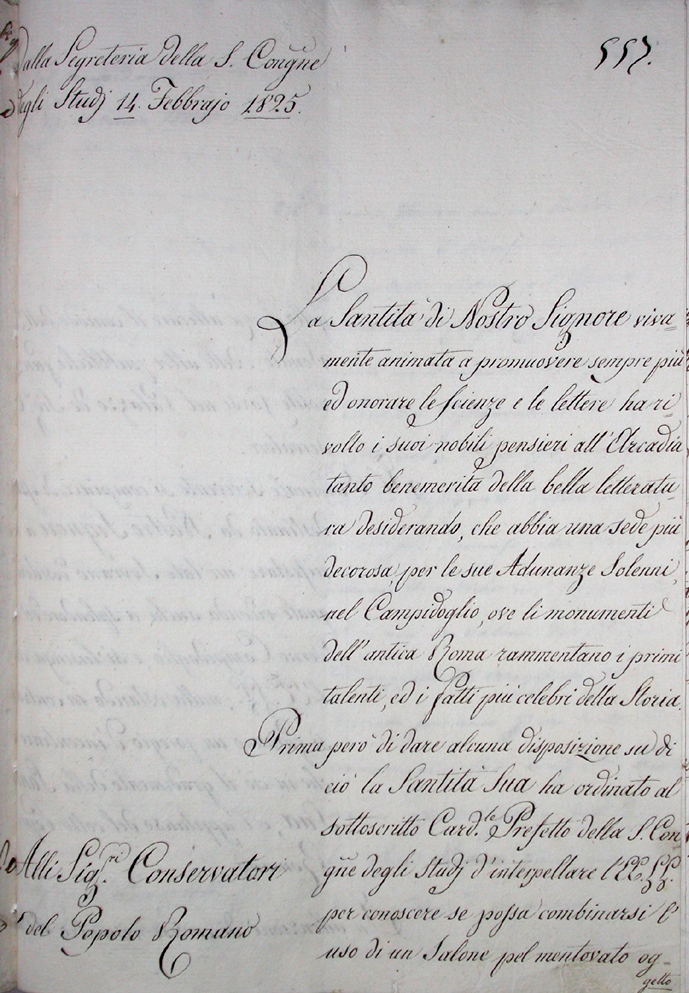 Dalla Segreteria della S. Congñe
degli Studj 14. Febbrajo 1825.
557.
La Santità di Nostro Signore viva-
mente animata a promuovere sempre più
ed onorare le scienze e le lettere ha ri-
volto i suoi nobili pensieri all'Arcadia
tanto benemerita della bella letteratu-
ra desiderando, che abbia una sede più
decorosa, per le sue Adunanze Solenni,
nel Campidoglio, ove li monumenti
dell'antica Roma rammentano i primi
talenti, ed i fatti più celebri della Storia.
Prima però di dare alcuna disposizione su di
ciò la Santità Sua ha ordinato al
sottoscritto Card.le Prefetto della S. Con-
gñe degli Studj d'interpellare l'EE. LL.
per conoscere se possa combinarsi l'
uso di un Salone pel mentovato og-
getto
Alli Sig.ri Conservatori
del Popolo Romano